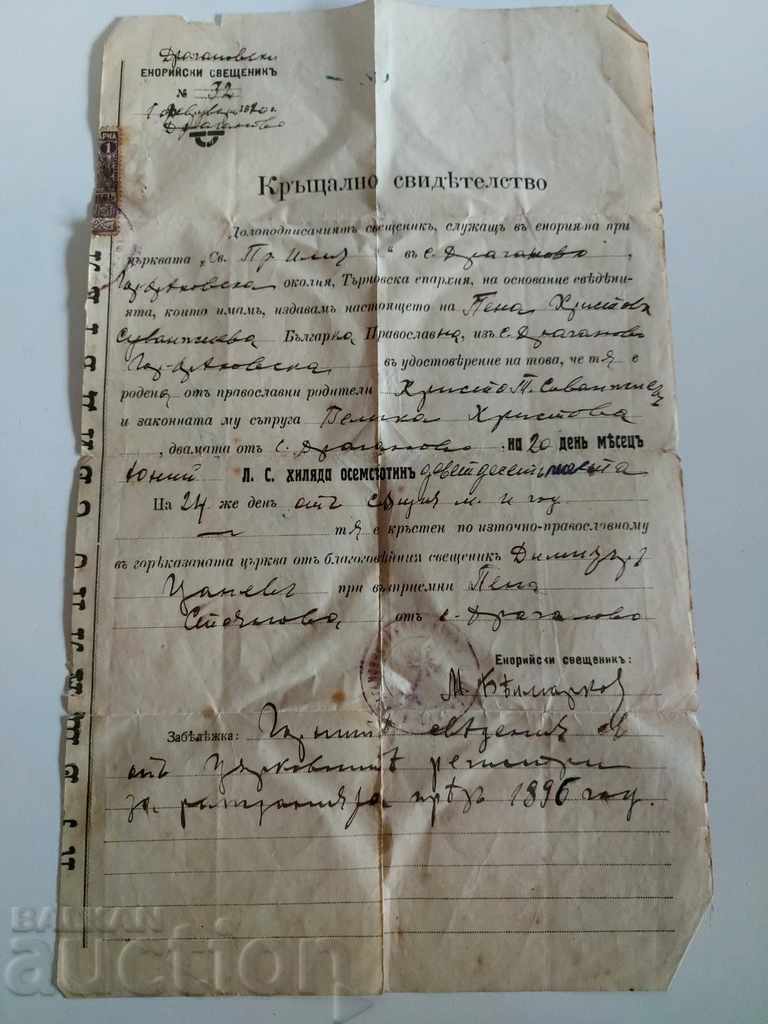 Драгановски
ЕНОРИЙСКИ СВЕЩЕНИКЪ
№ 32
1
Драганово
Кръщално свидѣтелство
Долоподписачиятъ свещеникъ, служащъ въ енорията при
църквата „Св. Пр. Илия“ въ с. Драганово,
околия, Търновска епархия, на основание свѣдѣни-
ята, които имамъ, издавамъ настоящето на Пена Христова
Българка Православна, изъ с. Драганово
въ удостовѣрение на това, че тя е
родена отъ православни родители Христо П.
и законната му съпруга Велика Христова
, двамата отъ с. Драганово, на 20 день мѣсецъ
Юний Л. С. хиляда осемстотинъ деветдесеть шеста
На 24 же день отъ сѫщия м. и год
тя е кръстен по източно-православному
въ горѣказаната църква отъ благоговѣйния свещеникъ Димитъръ
Цаневъ при въсприемни Пена
Стоянова отъ с. Драганово
Енорийски свещеникъ:
М. Бѣлмарков
Забѣлѣжка: Горнитѣ сведения са
отъ църковнитѣ регистри
за ражданията прѣзъ 1896 год.
1
BALKAN
auction